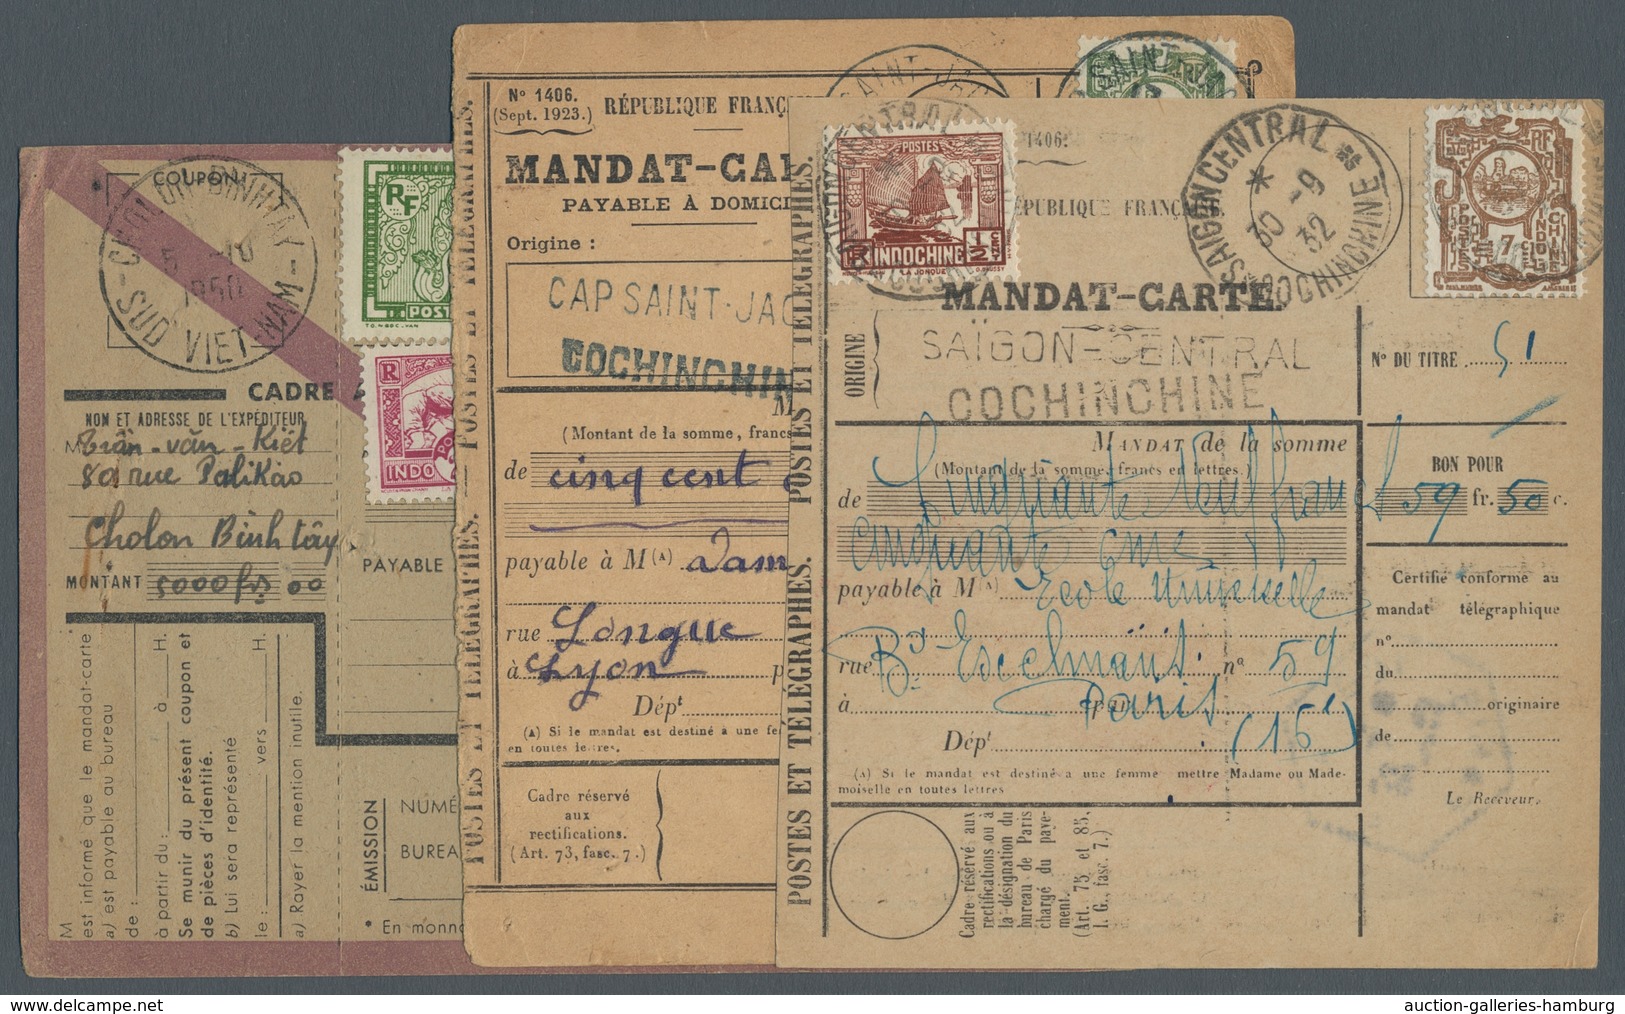 COUPON
CHOLON-BINHTAY
5 -10
1950
SUD VIET-NAM
RF
POST
CADRE
NOM ET ADRESSE DE L'EXPÉDITEUR
M Trân-văn-Kiét
82 rue Palikao
Cholon Binh tây
MONTANT 5000 frs 00
M
est informé que le mandat-carte
a) est payable au bureau
de : à H.
à partir du :
Se munir du présent coupon et
de pièces d'identité.
b) Lui sera représenté
le : vers H.
a) Rayer la mention inutile.
R
INDO
PAYABLE
ÉMISSION
NUMÉ
BUREA
• En monn
POSTES ET TÉLÉGRAPHES. — POSTES ET TÉLÉGRAPHES.
N° 1406.
(Sept. 1923.)
RÉPUBLIQUE FRANÇ
MANDAT-CAR
PAYABLE À DOMICI
Origine :
CAP SAINT-JAC
COCHINCHIN
M
(Montant de la somme, francs
de cinq cent
payable à M(A) Dam
rue Longue
à Lyon
Dépt
(A) Si le mandat est destiné à une fe
en toutes lettres.
Cadre réservé
aux
rectifications.
(Art. 73, fasc. 7.)
POSTES ET TÉLÉGRAPHES. — POSTES ET TÉLÉGRAPHES.
1406.
RÉPUBLIQUE FRANÇAISE.
POSTES
1/2 CENT
INDOCHINE
LA JONQUE
SAIGON CENTRAL
30 -9
32
COCHINCHINE
RF
POSTES
INDOCHINE
7
MANDAT-CARTE
ORIGINE
SAÏGON-CENTRAL
COCHINCHINE
N° DU TITRE 51
MANDAT de la somme
(Montant de la somme, francs en lettres.)
de Cinquante Neuf francs
Cinquante cme
payable à M(A) Ecole Universelle
rue Bd Exelmans n° 59
à Paris par
Dépt (16e)
(A) Si le mandat est destiné a une femme mettre Madame ou Made-
moiselle en toutes lettres
BON POUR
59 fr. 50 c.
Certifié conforme au
mandat télégraphique
n°
du
originaire
de
Le Receveur.
Cadre réservé aux
rectifications ou à
la désignation du
bureau de Paris
chargé du paye-
ment.
(Art. 75 et 85,
I. G., fasc. 7.)
auction-galleries-hamburg